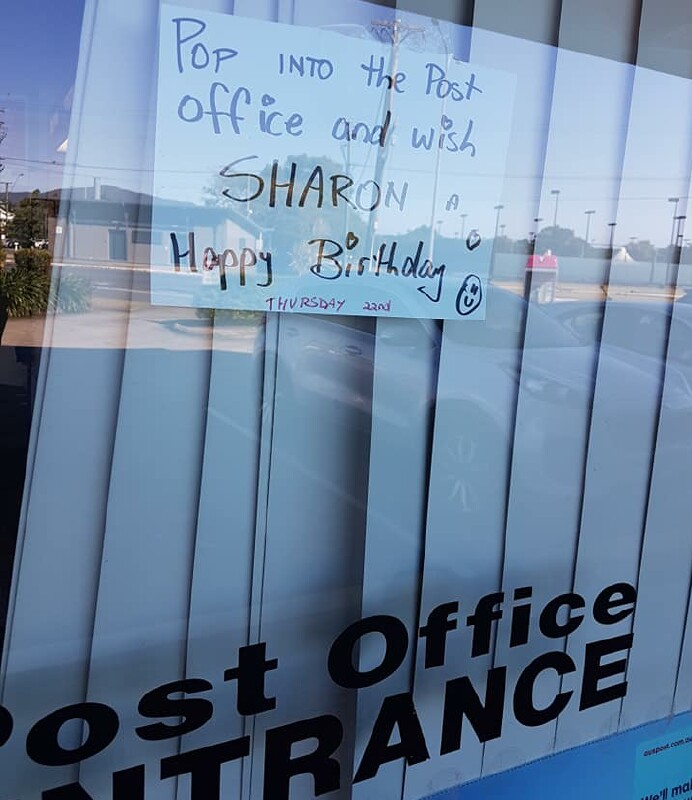 Pop INTO the Post
office and wish
SHARON A
Happy Birthday
THURSDAY 22nd
Post Office
ENTRANCE
auspost.com.au
We'll